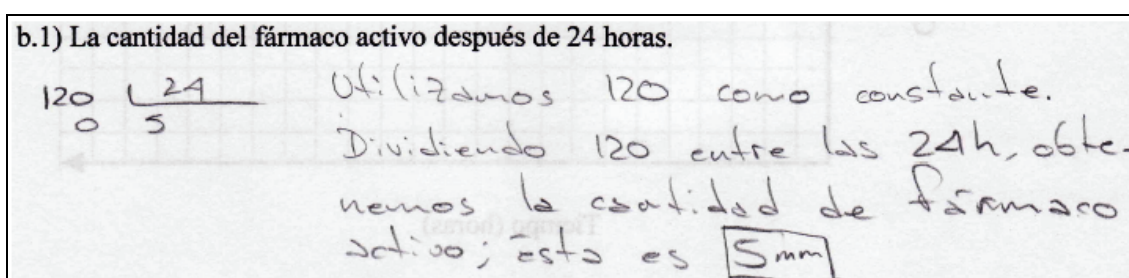 b.1) La cantidad del fármaco activo después de 24 horas.
120 24 Utilizamos 120 como constante.
0 5 Dividiendo 120 entre las 24h, obte-
nemos la cantidad de fármaco
activo; ésta es 5mm
Tiempo (horas)